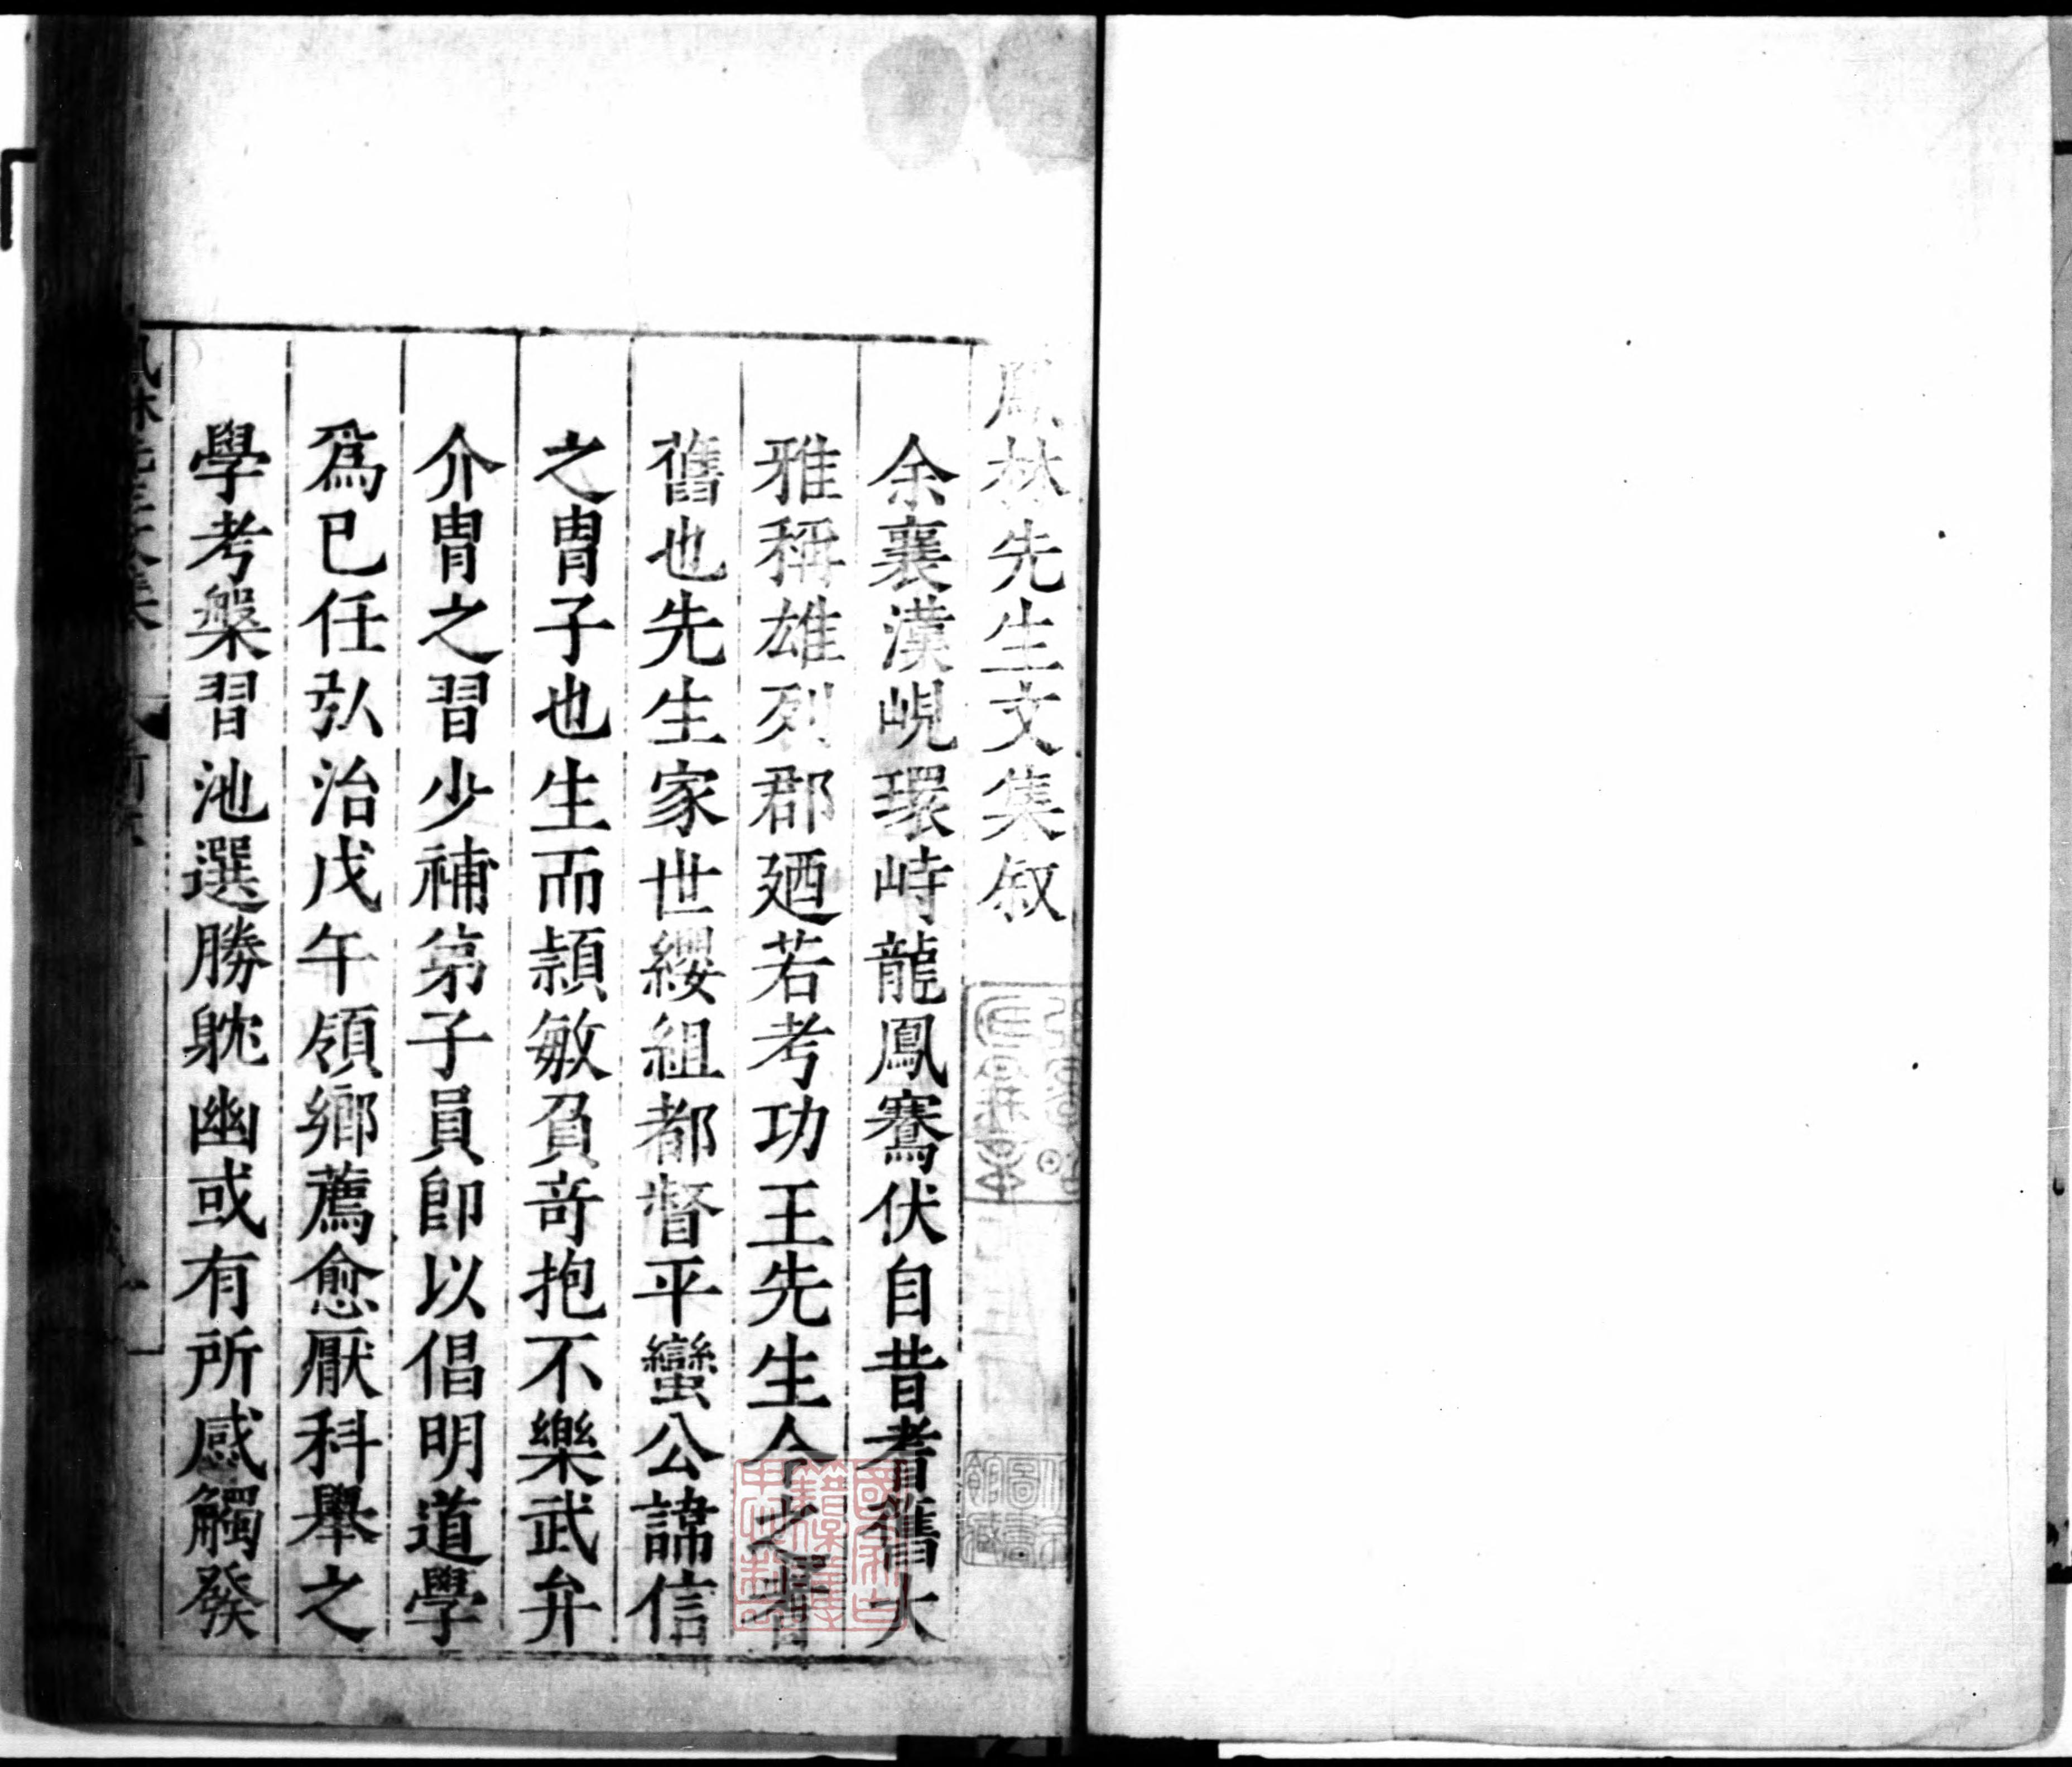 鳳林先生文集叙
余襄漢峴環峙龍鳳騫伏自昔耆舊大
雅稱雄列郡廼若考功王先生今之耆
舊也先生家世纓組都督平蠻公諱信
之冑子也生而頴敏負奇抱不樂武弁
介冑之習少補第子員卽以倡明道學
爲已任弘治戊午領鄉薦愈厭科舉之
學考槃習池選勝躭幽或有所感觸發